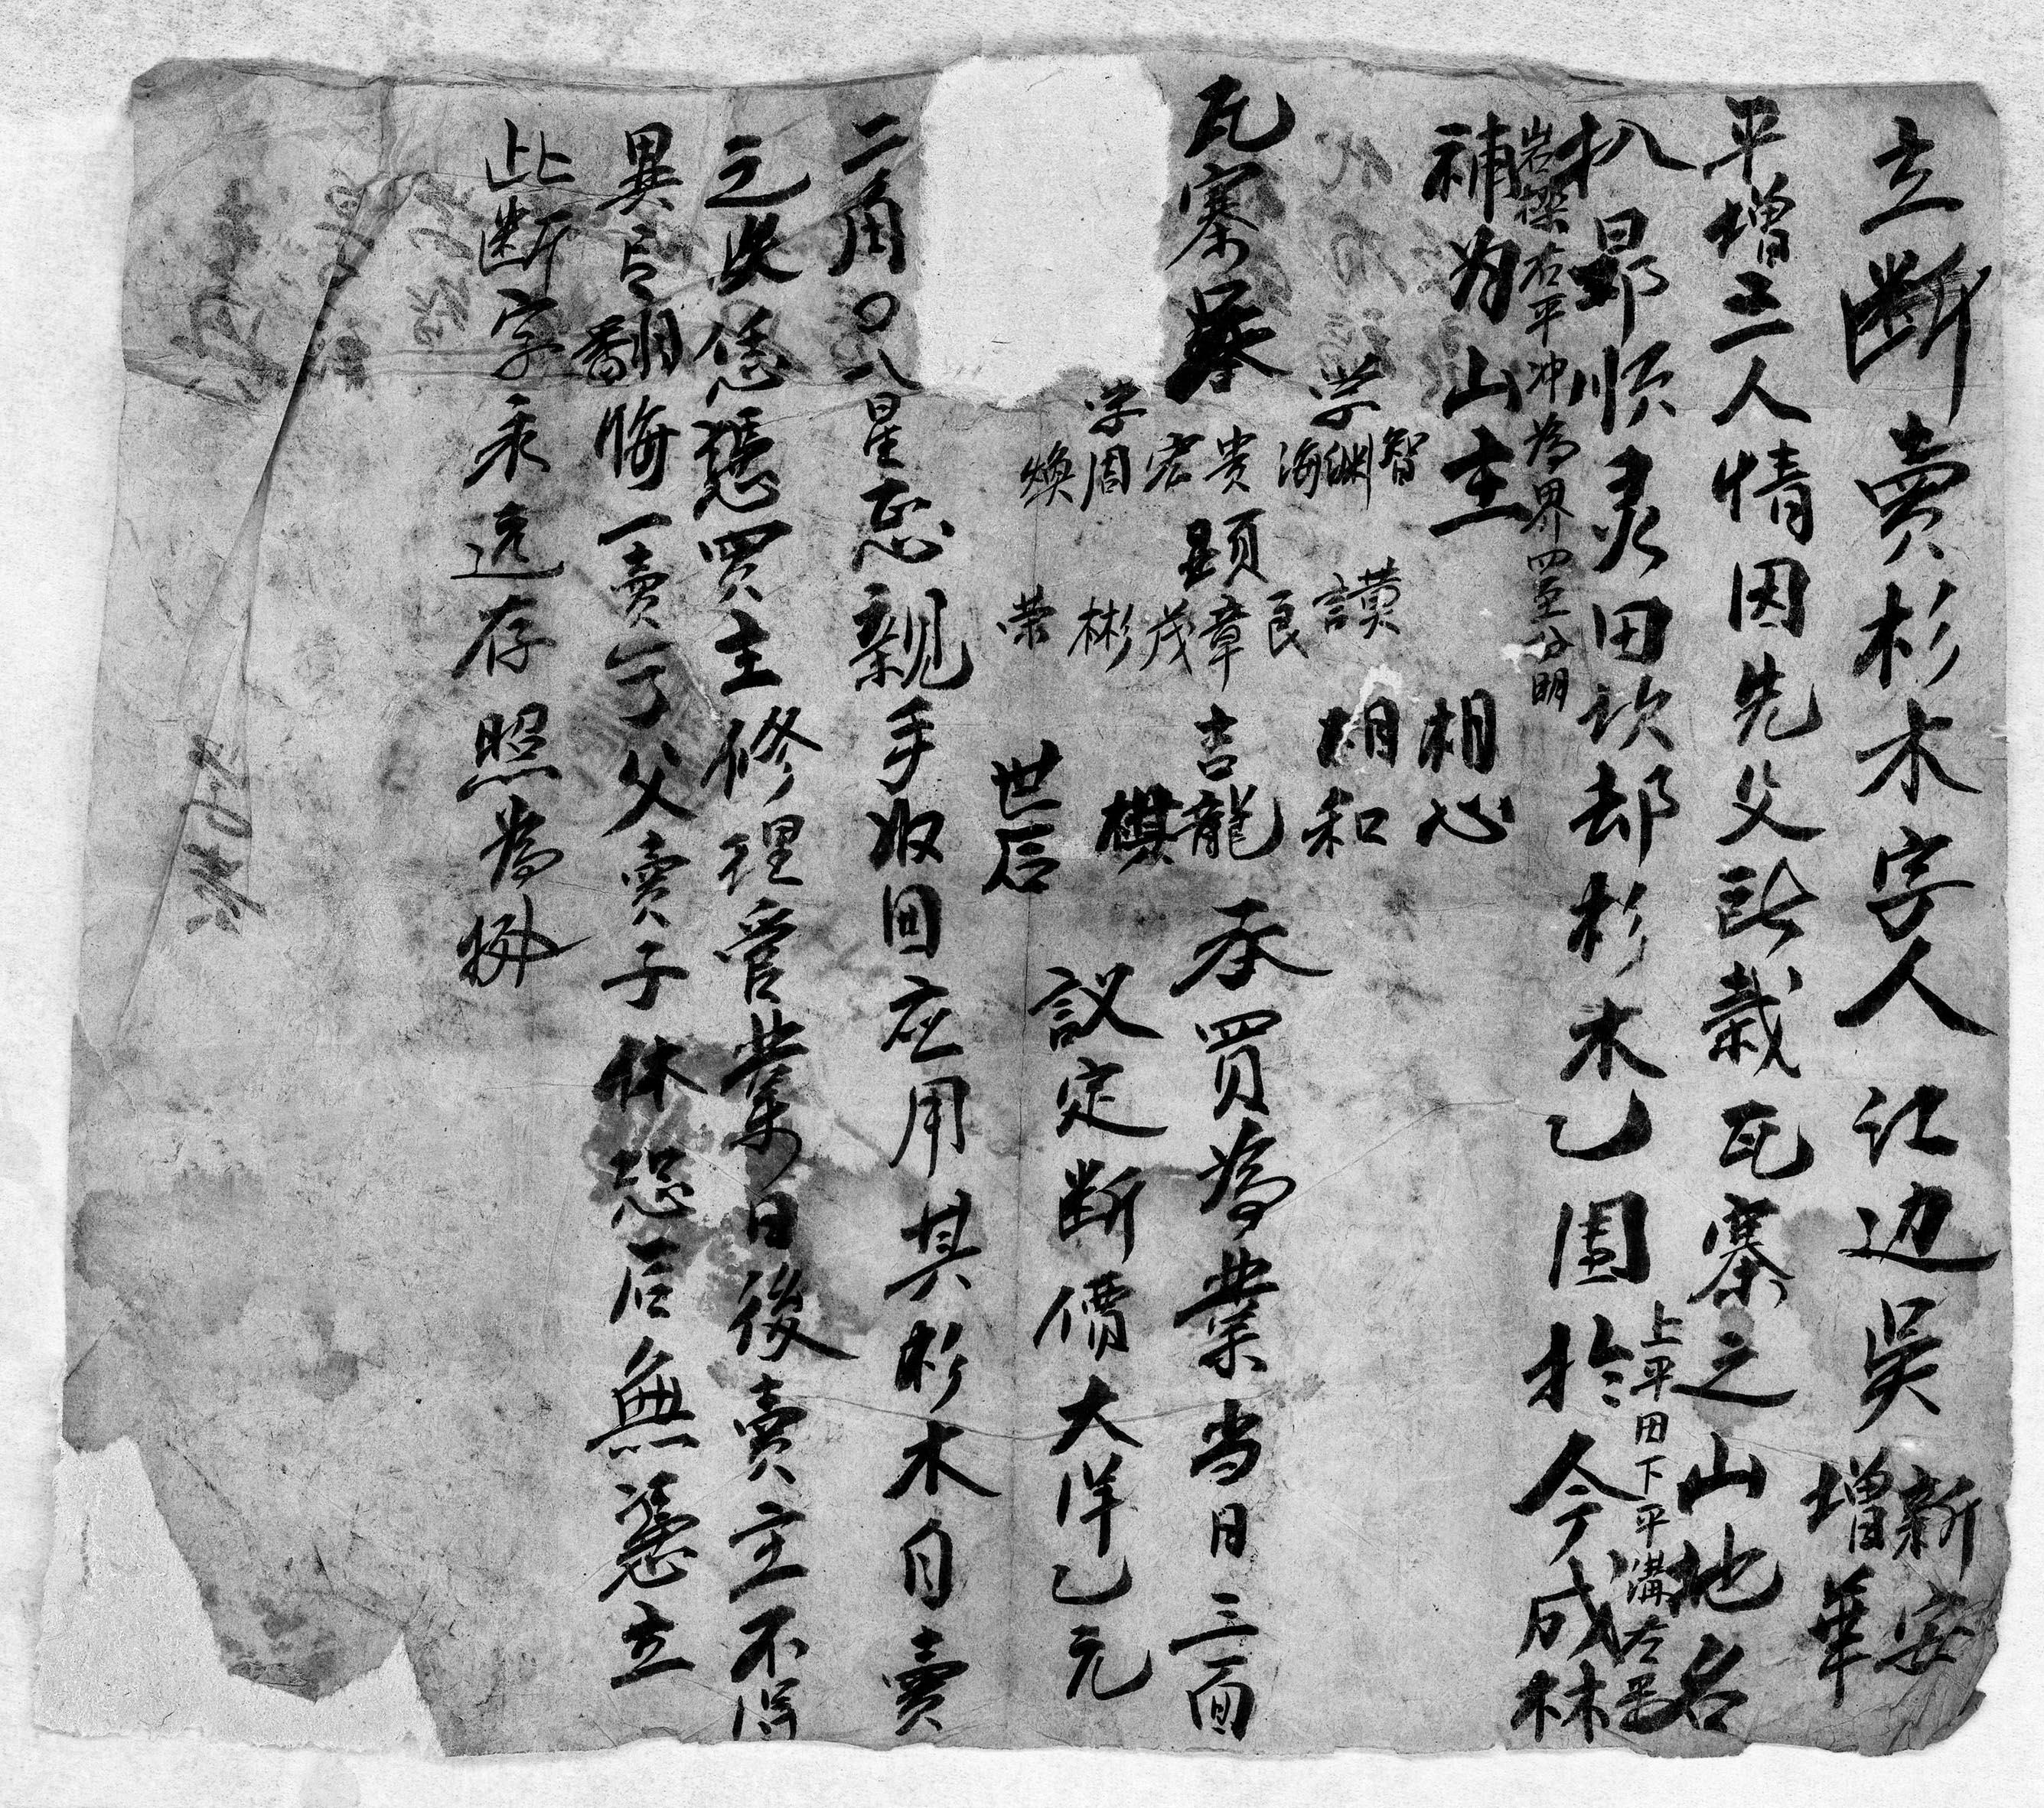 立断賣杉木字人江边吳新安
增華
平增三人情因先父所栽瓦寨之山地名
扒昻順灵田坎却杉木乙團於今成林
上平田下平溝左平
岩樑右平冲為界四至分明
補为山主
相心
学智渊海
謨
相和
瓦寨
学貴宏周煥
顕章良茂彬荣
吉龍
棋
世后
承買為業当日三面
議定断價大洋乙元
二角〇八星恧親手收回应用其杉木自賣
之後恁憑買主修理管業日後賣主不得
異言翻悔一賣亐父賣子休恐后無憑立
此断字永远存照為拠